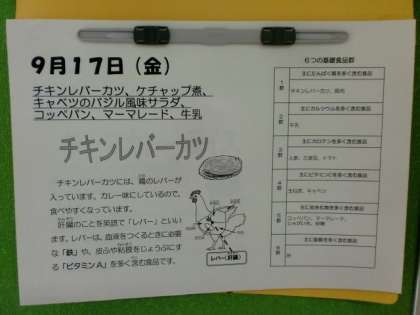 9月17日（金）
チキンレバーカツ、ケチャップ煮、
キャベツのバジル風味サラダ、
コッペパン、マーマレード、牛乳
チキンレバーカツ
チキンレバーカツには、鶏のレバーが
入っています。カレー味にしているので、
食べやすくなっています。
肝臓のことを英語で「レバー」といい
ます。レバーは、血液をつくるときに必要
な「鉄」や、皮ふや粘膜をじょうぶにす
る「ビタミンA」を多く含む食品です。
レバー（肝臓）
6つの基礎食品群
1群
主にたんぱく質を多く含む食品
チキンレバーカツ、鶏肉
2群
主にカルシウムを多く含む食品
牛乳
3群
主にカロテンを多く含む食品
人参、三度豆、トマト
4群
主にビタミンCを多く含む食品
玉ねぎ、キャベツ
5群
主に炭水化物を多く含む食品
コッペパン、マーマレード、
じゃがいも、砂糖
6群
主に脂質を多く含む食品
油